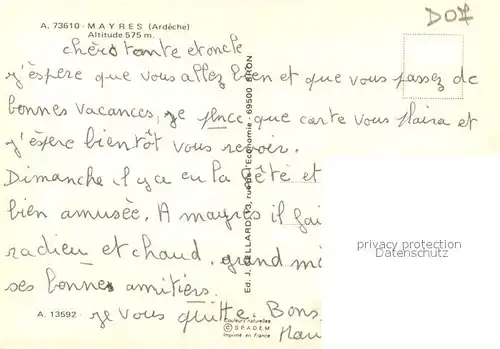 A. 73610 - MAYRES (Ardèche)
Altitude 575 m.
DO7
chèrs tante et oncle
j'èspère que vous allez bien et que vous passez de
bonnes vacances, je pence que carte vous plaira et
j'éspère bientôt vous revoir.
Dimanche il y a eu la fêté et
bien amusée. A mayres il fai
radieu et chaud. grand mè
ses bonnes amitiers.
je vous quitte. Bons
A. 13592 -
Couleurs naturelles
© S.P.A.D.E.M.
Imprimé en France
Ed. J. CELLARD, 13, rue de l'Economie - 69500 BRON
privacy protection
Datenschutz